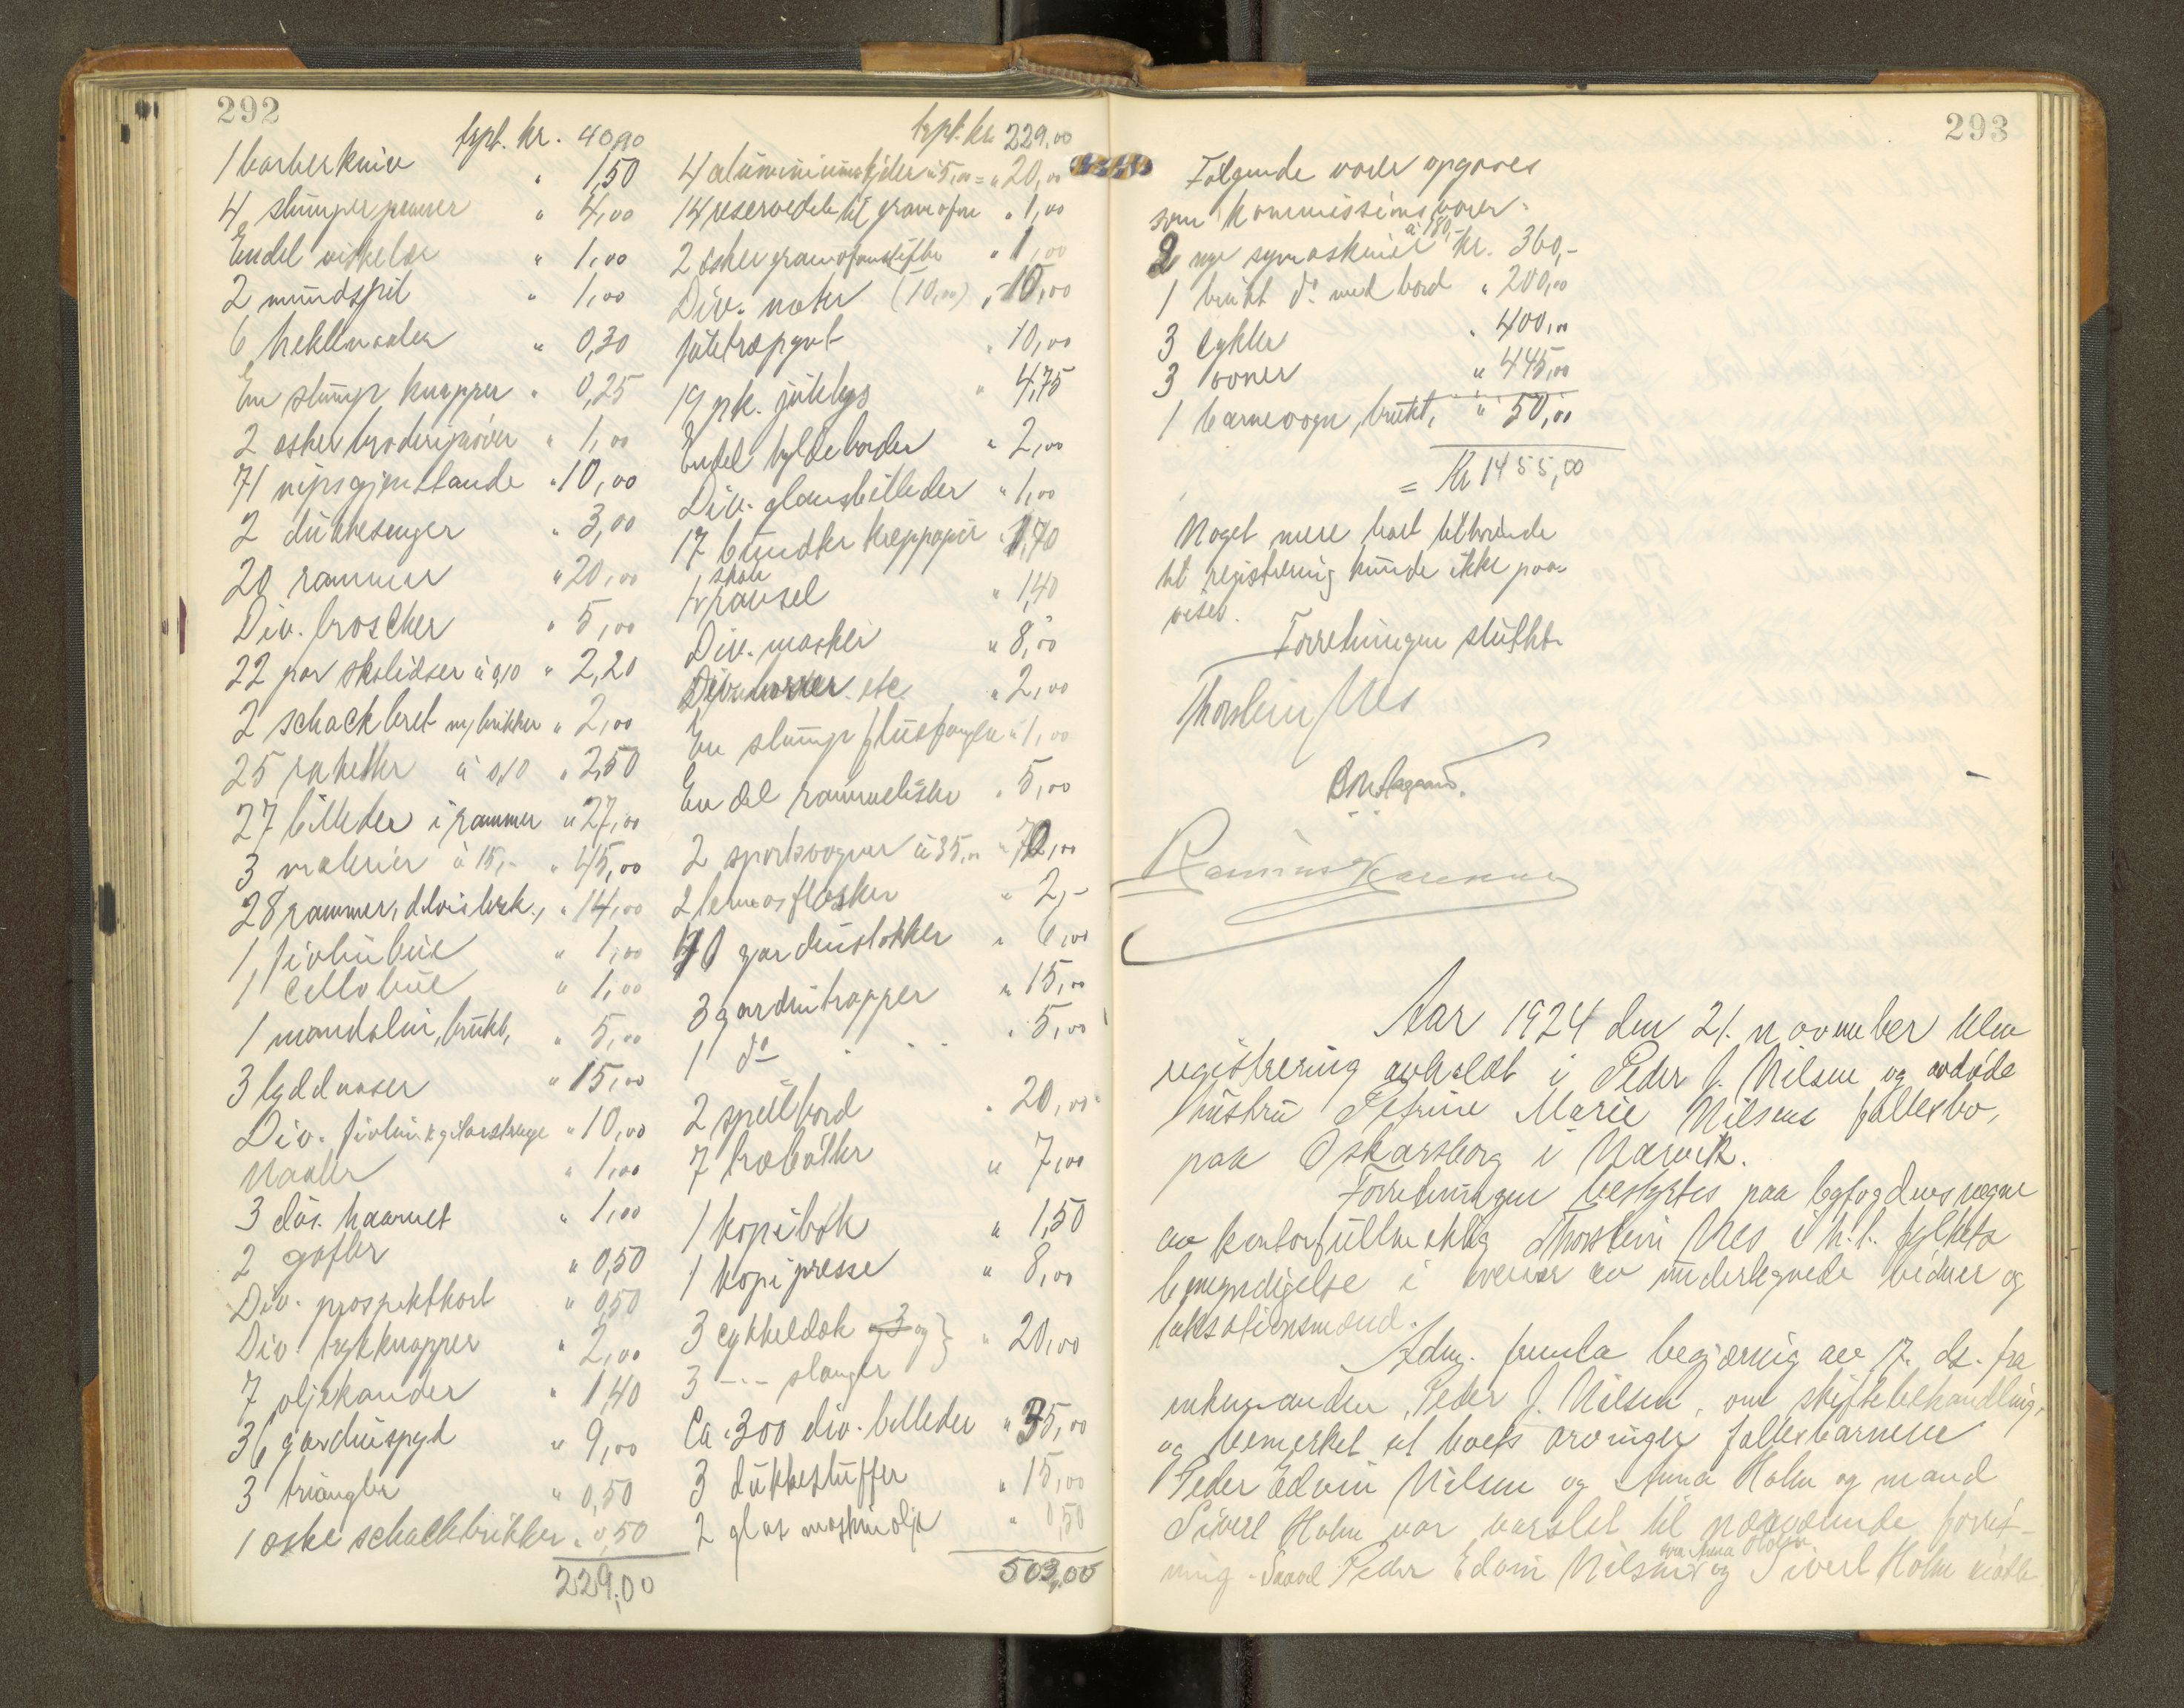 292
trpt. kr. 40,90
1 barberkniv " 1,50
4 slumper penner " 4,00
Endel viskelær " 1,00
2 mundspil " 1,00
6 heklenaaler " 0,30
En slump knapper " 0,25
2 esker broderiprøver " 1,00
71 nipsgjenstande " 10,00
2 dukkesenger " 3,00
20 rammer " 20,00
Div. broscher " 5,00
22 par skolidser à 0,10 " 2,20
2 schackbret m/ brikker " 2,00
25 raketter à 0,10 " 2,50
27 billeder i rammer " 27,00
3 malerier à 15,- " 45,00
28 rammer, delvis bræk., " 14,00
1 fiolinbue " 1,00
1 cellobue " 1,00
1 mandolin, brukt, " 5,00
3 lyddaaser " 15,00
Div. fiolin & gitarstrenge " 10,00
Naaler " 1,00
3 dus. haarnet " 1,00
2 gafler " 0,50
Div. prospektkort " 0,50
Div. trykknapper " 2,00
7 oljekander " 1,40
36 gardinspyd " 9,00
3 triangler " 0,50
1 æske schackbrikker " 0,50
229,00
trpt. kr. 229,00
4 aluminiums kjeler à 5,00 = " 20,00
14 reservedele til gramofon " 1,00
2 æsker gramofonstifter " 1,00
Div. noter (10,00) " 10,00
Juletræpynt " 10,00
19 pk. julelys " 4,75
Endel hyldeborder " 2,00
Div. glansbilleder " 1,00
17 bundter kreppapir " 1,70
1 skole ransel " 1,40
Div. masker " 8,00
Div. etc " 2,00
En slump fluefangere " 1,00
En del rammelister " 5,00
2 sportsvogner à 35,00 " 70,00
2 termosflasker " 2,-
10 gardinstokker " 6,00
3 gardintrapper " 15,00
1 do - - - " 5,00
2 spillbord " 20,00
7 træbøtter " 7,00
1 kopibok " 1,50
1 kopipresse " 8,00
3 cykkeldæk og } " 20,00
3 -"- slanger
Ca. 300 div. billeder " 35,00
3 dukkestuffer " 15,00
2 glas maskinolje " 0,50
503,00
293
Følgende varer opgaves
som kommissionsvarer:
2 nye symaskiner à 180,- kr. 360,-
1 brukt do. med bord " 200,00
3 cykler " 400,00
3 ovner " 445,00
1 barnevogn, brukt, " 50,00
= Kr 1455,00
Noget mere boet tilhørende
til registrering kunde ikke paa-
vises.
Forretningen sluttet.
Thorstein Nes
Rasmus
Aar 1924 den 21. november blev
registrering avholdt i Peder J. Nilsen og avdøde
hustru Petrine Marie Nilsens fællesbo,
paa Oskarsborg i Narvik.
Forretningen bestyrtes paa byfogdens vegne
av kontorfullmektig Thorstein Nes i h.t. fylkets
bemyndigelse i overvær av undertegnede vidner og
taksationsmænd.
Adm. fremla begjæring av 17. ds. fra
enkemanden, Peder J. Nilsen, om skiftebehandling,
og bemerket at boets arvinger fællesbarnene
Peder Edvin Nilsen og Anna Holm og mand
Sivert Holm var varslet til nærværende forret-
ning. Saavel Peder Edvin Nilsen som Anna Holm og Sivert Holm